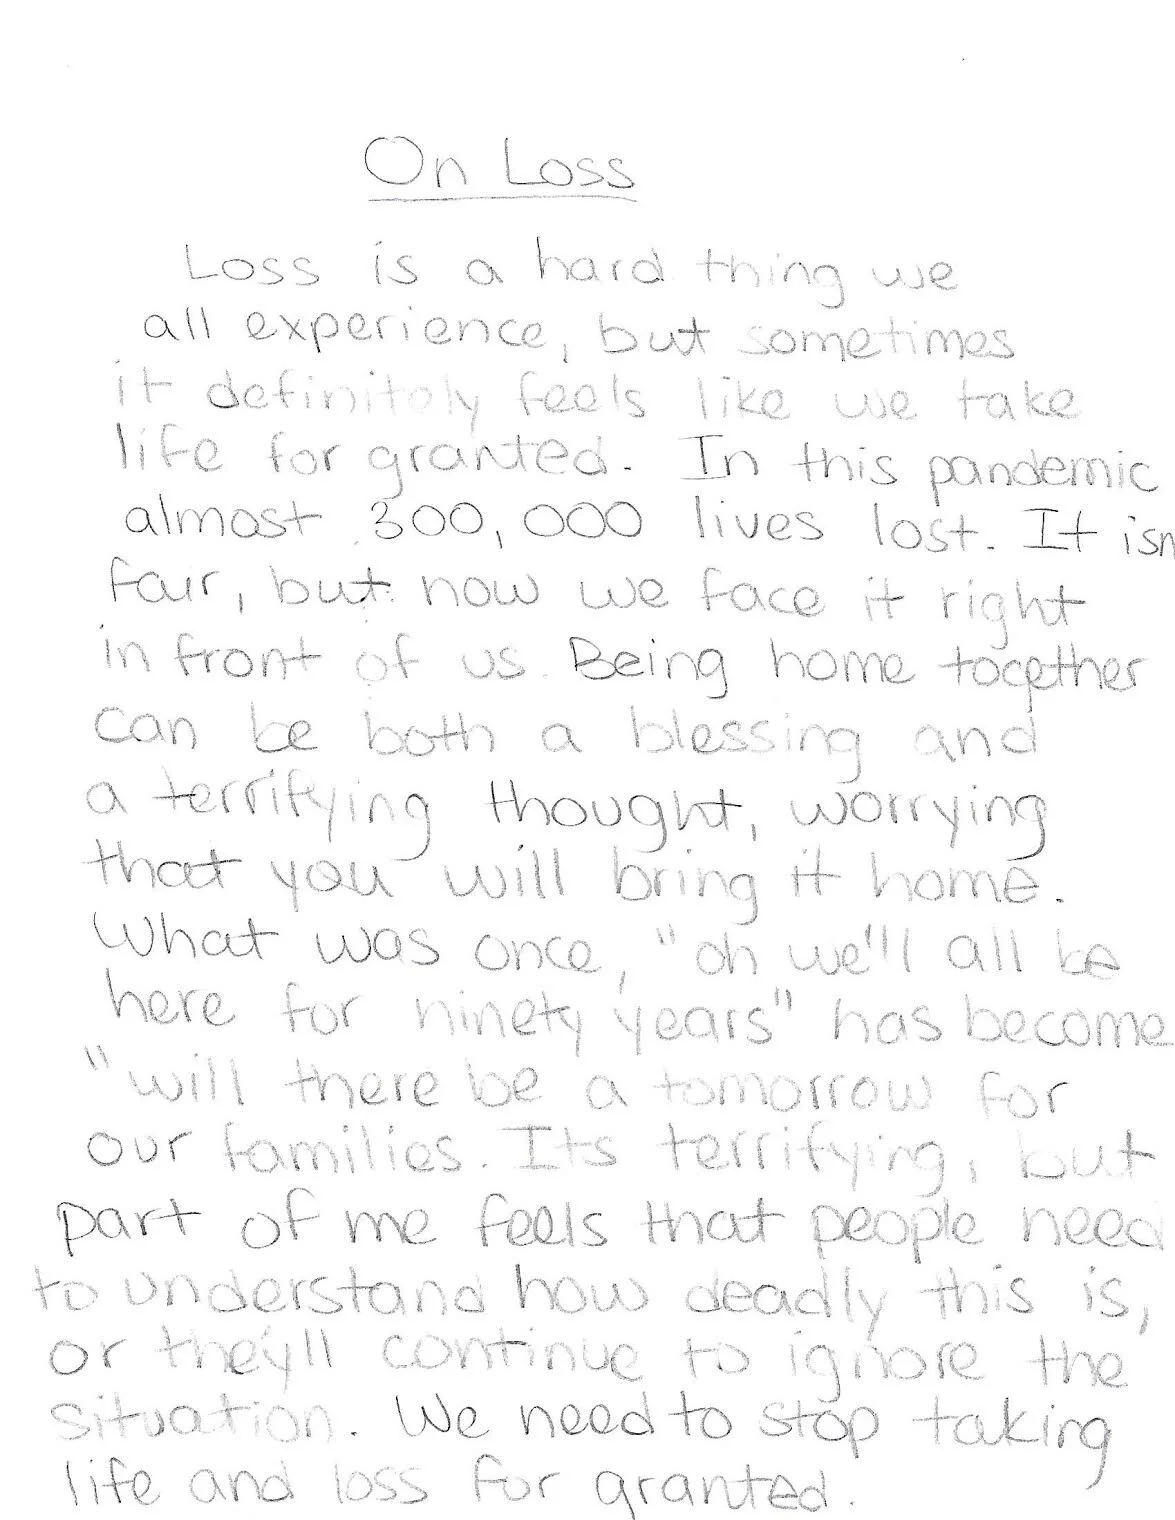 On Loss
Loss is a hard thing we
all experience, but sometimes
it definitely feels like we take
life for granted. In this pandemic
almost 300,000 lives lost. It isn
fair, but now we face it right
in front of us. Being home together
can be both a blessing and
a terrifying thought, worrying
that you will bring it home.
What was once, "oh we'll all be
here for ninety years" has become
"will there be a tomorrow for
our families. Its terrifying, but
part of me feels that people need
to understand how deadly this is,
or they'll continue to ignore the
situation. We need to stop taking
life and loss for granted.